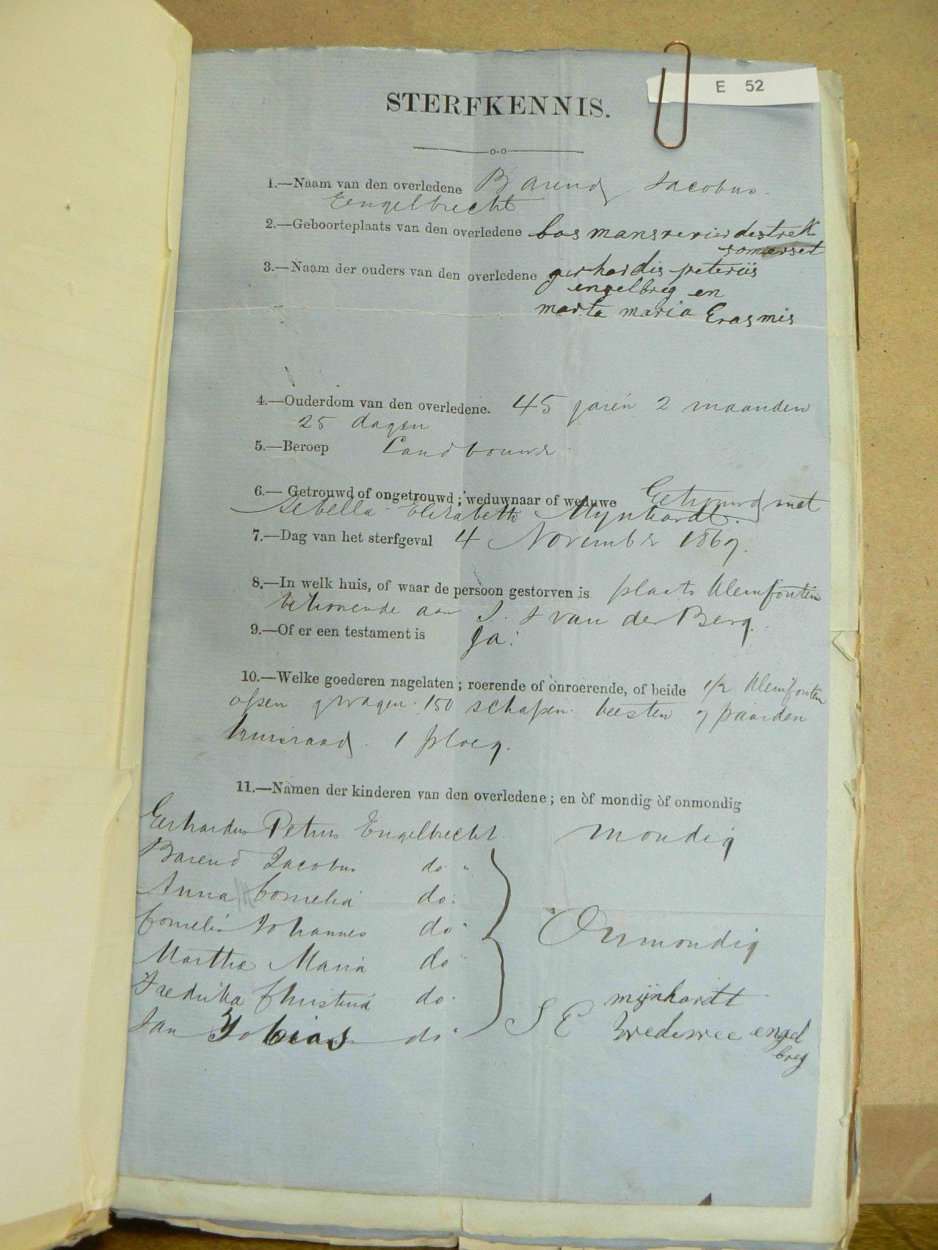 E 52
STERFKENNIS.
1.—Naam van den overledene Barend Jacobus
Eengelbrecht
2.—Geboorteplaats van den overledene bos mansrevier destrek
somerset
3.—Naam der ouders van den overledene gerhardis peteriis
engelbreg en
marta maria Erasmis
4.—Ouderdom van den overledene. 45 jaren 2 maanden
25 dagen
5.—Beroep Landbouwer
6.— Getrouwd of ongetrouwd ; weduwnaar of weduwe Getrouwd met
Sebella Elizabeth Mynhardt.
7.—Dag van het sterfgeval 4 November 1869.
8.—In welk huis, of waar de persoon gestorven is plaats Kleinfontein
behoorende aan J. J van der Berg.
9.—Of er een testament is Ja.
10.—Welke goederen nagelaten ; roerende of onroerende, of beide 1/2 Kleinfontein
ossen wagen 150 schapen beesten 9 paarden
huisraad. 1 ploeg.
11.—Namen der kinderen van den overledene ; en òf mondig òf onmondig
Gerhardus Petrus Engelbrecht mondig
Barend Jacobus do
Anna Cornelia do
Cornelis Johannes do Onmondig
Martha Maria do
Fredrika Christina do mijnhardtt
Jan Tobias do S E Wedewee engel
breg